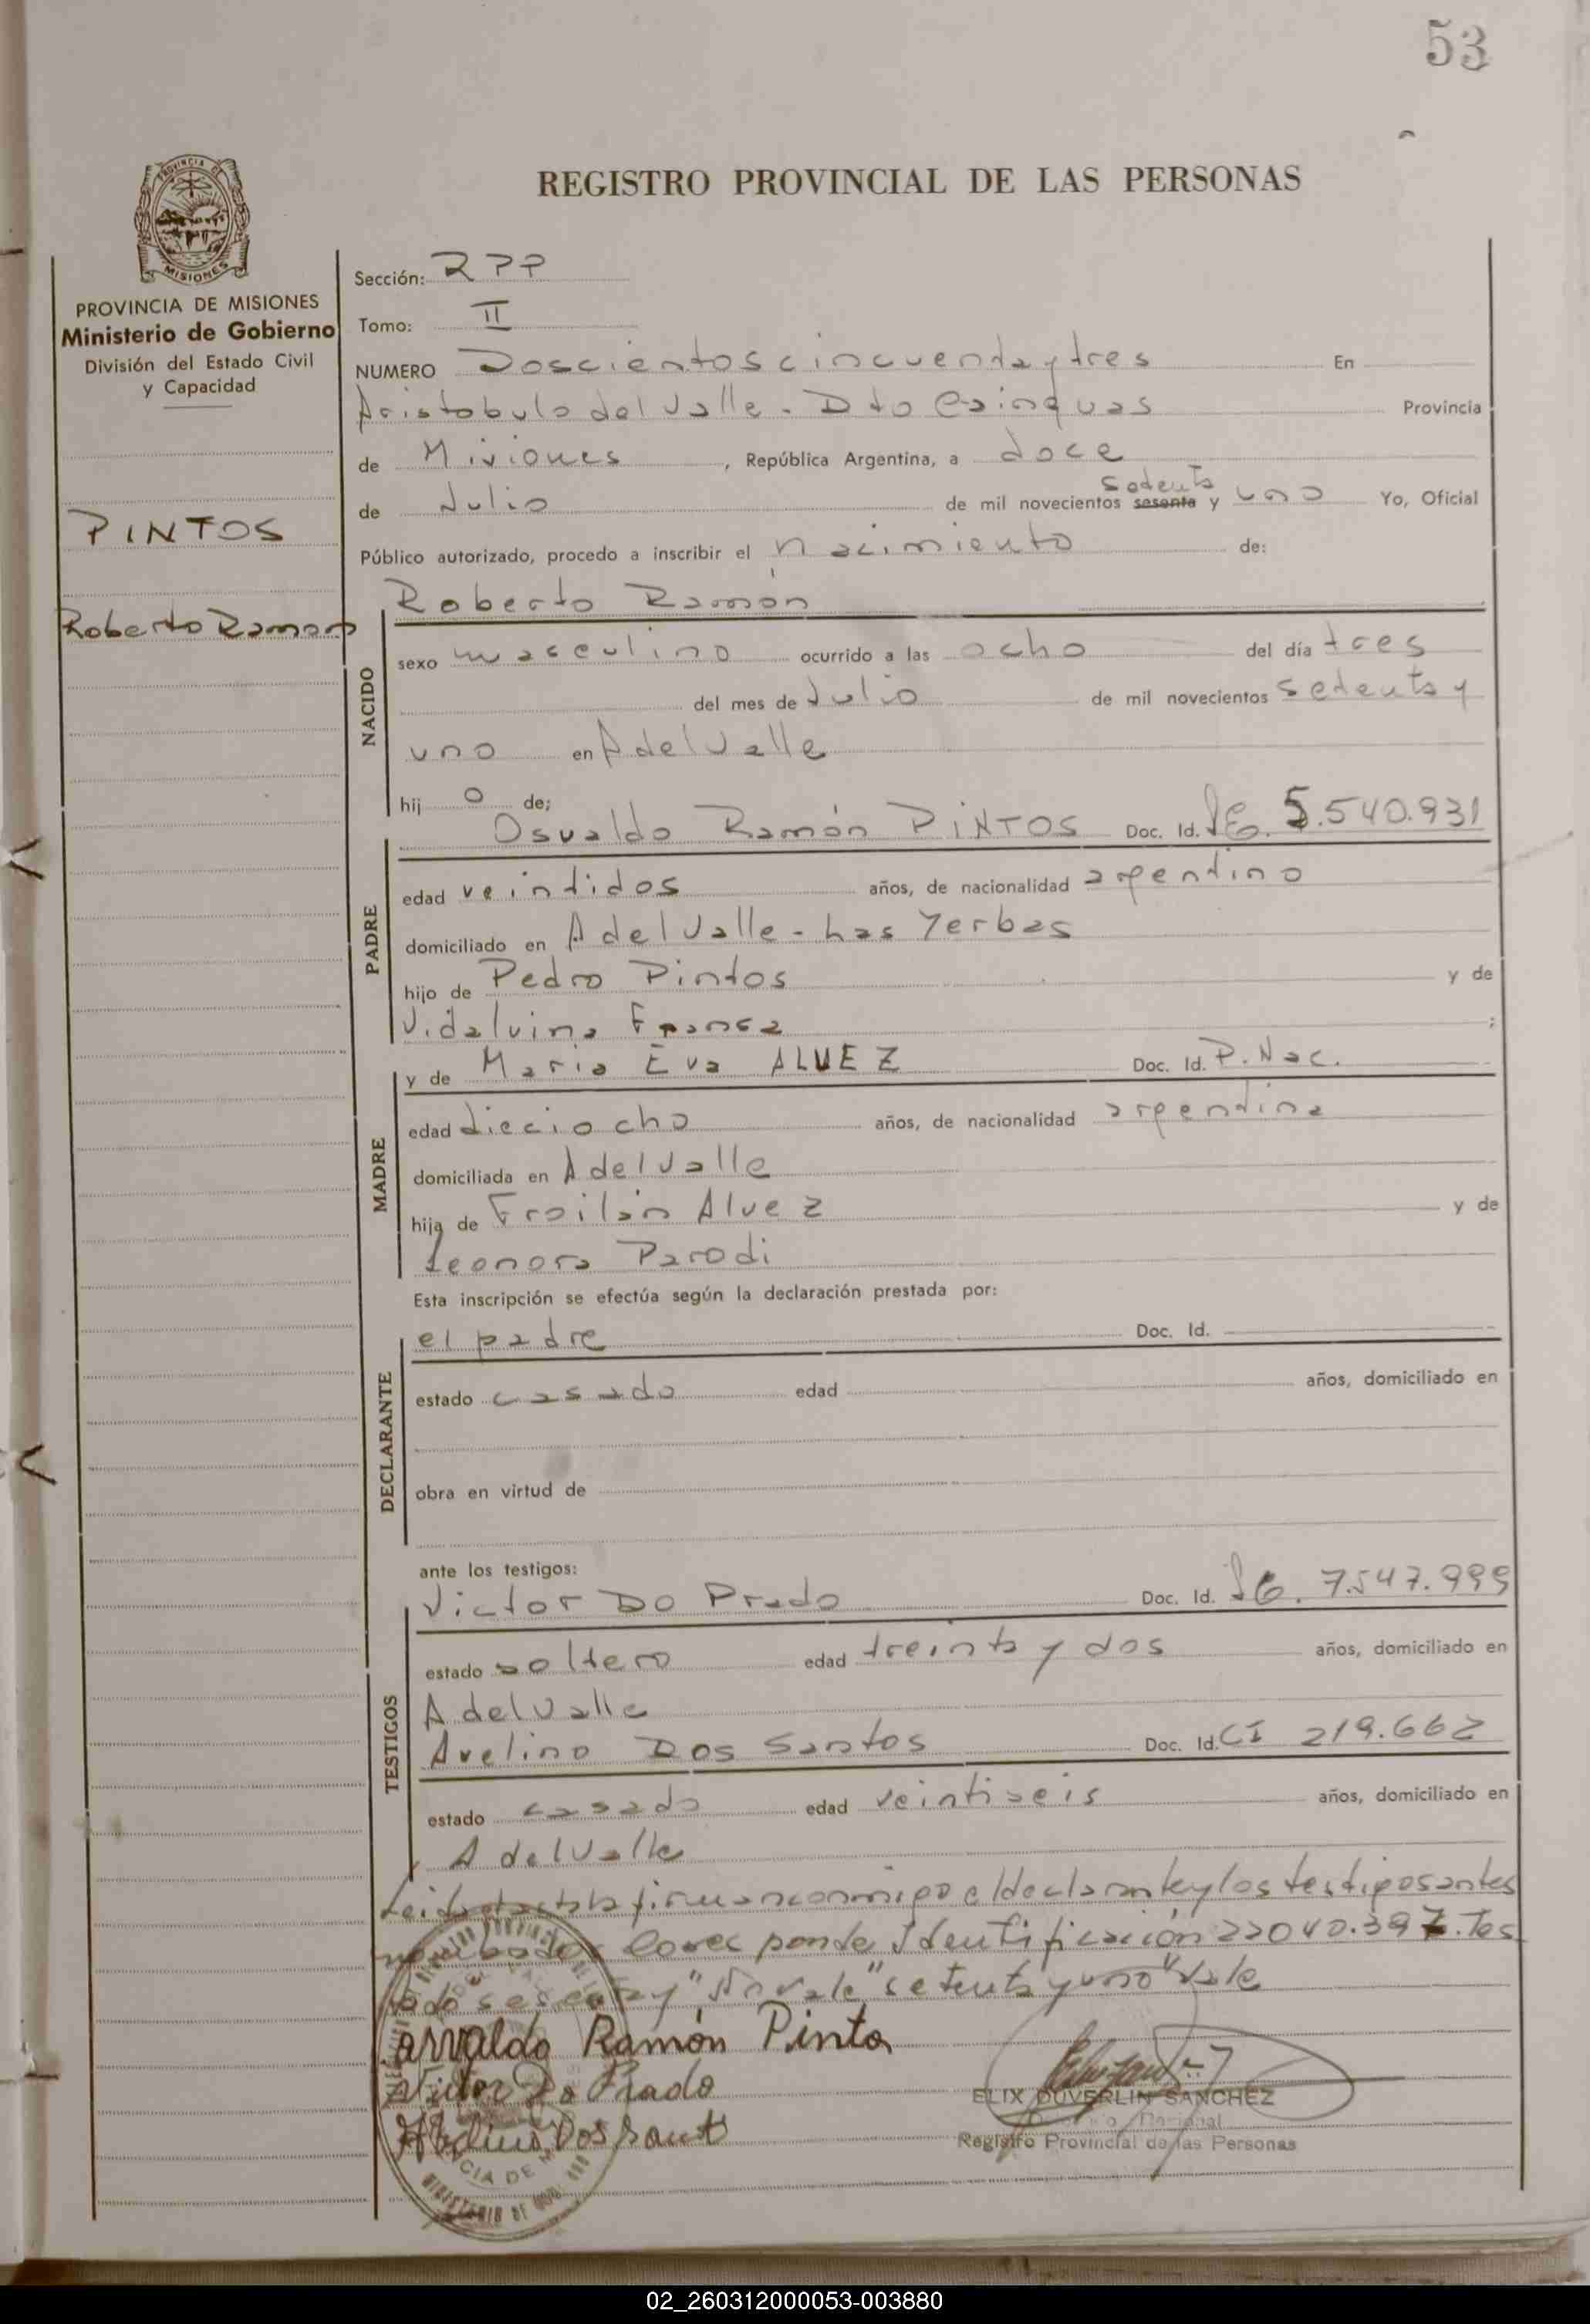 53
REGISTRO PROVINCIAL DE LAS PERSONAS
PROVINCIA DE
MISIONES
PROVINCIA DE MISIONES
Ministerio de Gobierno
División del Estado Civil
y Capacidad
PINTOS
Roberto Ramon
Sección: RPP
Tomo: II
NUMERO Doscientos cincuenta y tres En
Aristobulo del Valle - Dto Cainguas Provincia
de Misiones, República Argentina, a doce
setenta
de Julio de mil novecientos sesenta y uno Yo, Oficial
Público autorizado, procedo a inscribir el nacimiento de:
Roberto Ramón
NACIDO
sexo masculino ocurrido a las ocho del día tres
del mes de Julio de mil novecientos setenta y
uno en A del Valle
hijo de;
Osvaldo Ramón PINTOS Doc. Id. LE. 5.540.931
PADRE
edad veintidos años, de nacionalidad argentino
domiciliado en A del Valle - Las Yerbas
hijo de Pedro Pintos y de
Vidalvina Franca ;
y de Maria Eva ALVEZ Doc. Id. P. Nac.
MADRE
edad dieciocho años, de nacionalidad argentina
domiciliada en A del Valle
hija de Froilán Alvez y de
Leonora Parodi
Esta inscripción se efectúa según la declaración prestada por:
el padre Doc. Id.
DECLARANTE
estado casado edad años, domiciliado en
obra en virtud de
ante los testigos:
Victor Do Prado Doc. Id. LE. 7.547.999
TESTIGOS
estado soltero edad treinta y dos años, domiciliado en
A del Valle
Avelino Dos Santos Doc. Id. CI 219.662
estado casado edad veintiseis años, domiciliado en
A del Valle
Leida esta acta firman conmigo el declarante y los testigos antes
nombrados Corresponde Identificación 22040.397. Tes
tado sesenta y "No vale" setenta y uno "Vale
Osvaldo Ramón Pinto
Victor Do Prado
Avelino Dos Sant
ELIX DUVERLIN SANCHEZ
Registro Provincial de las Personas
02_260312000053-003880